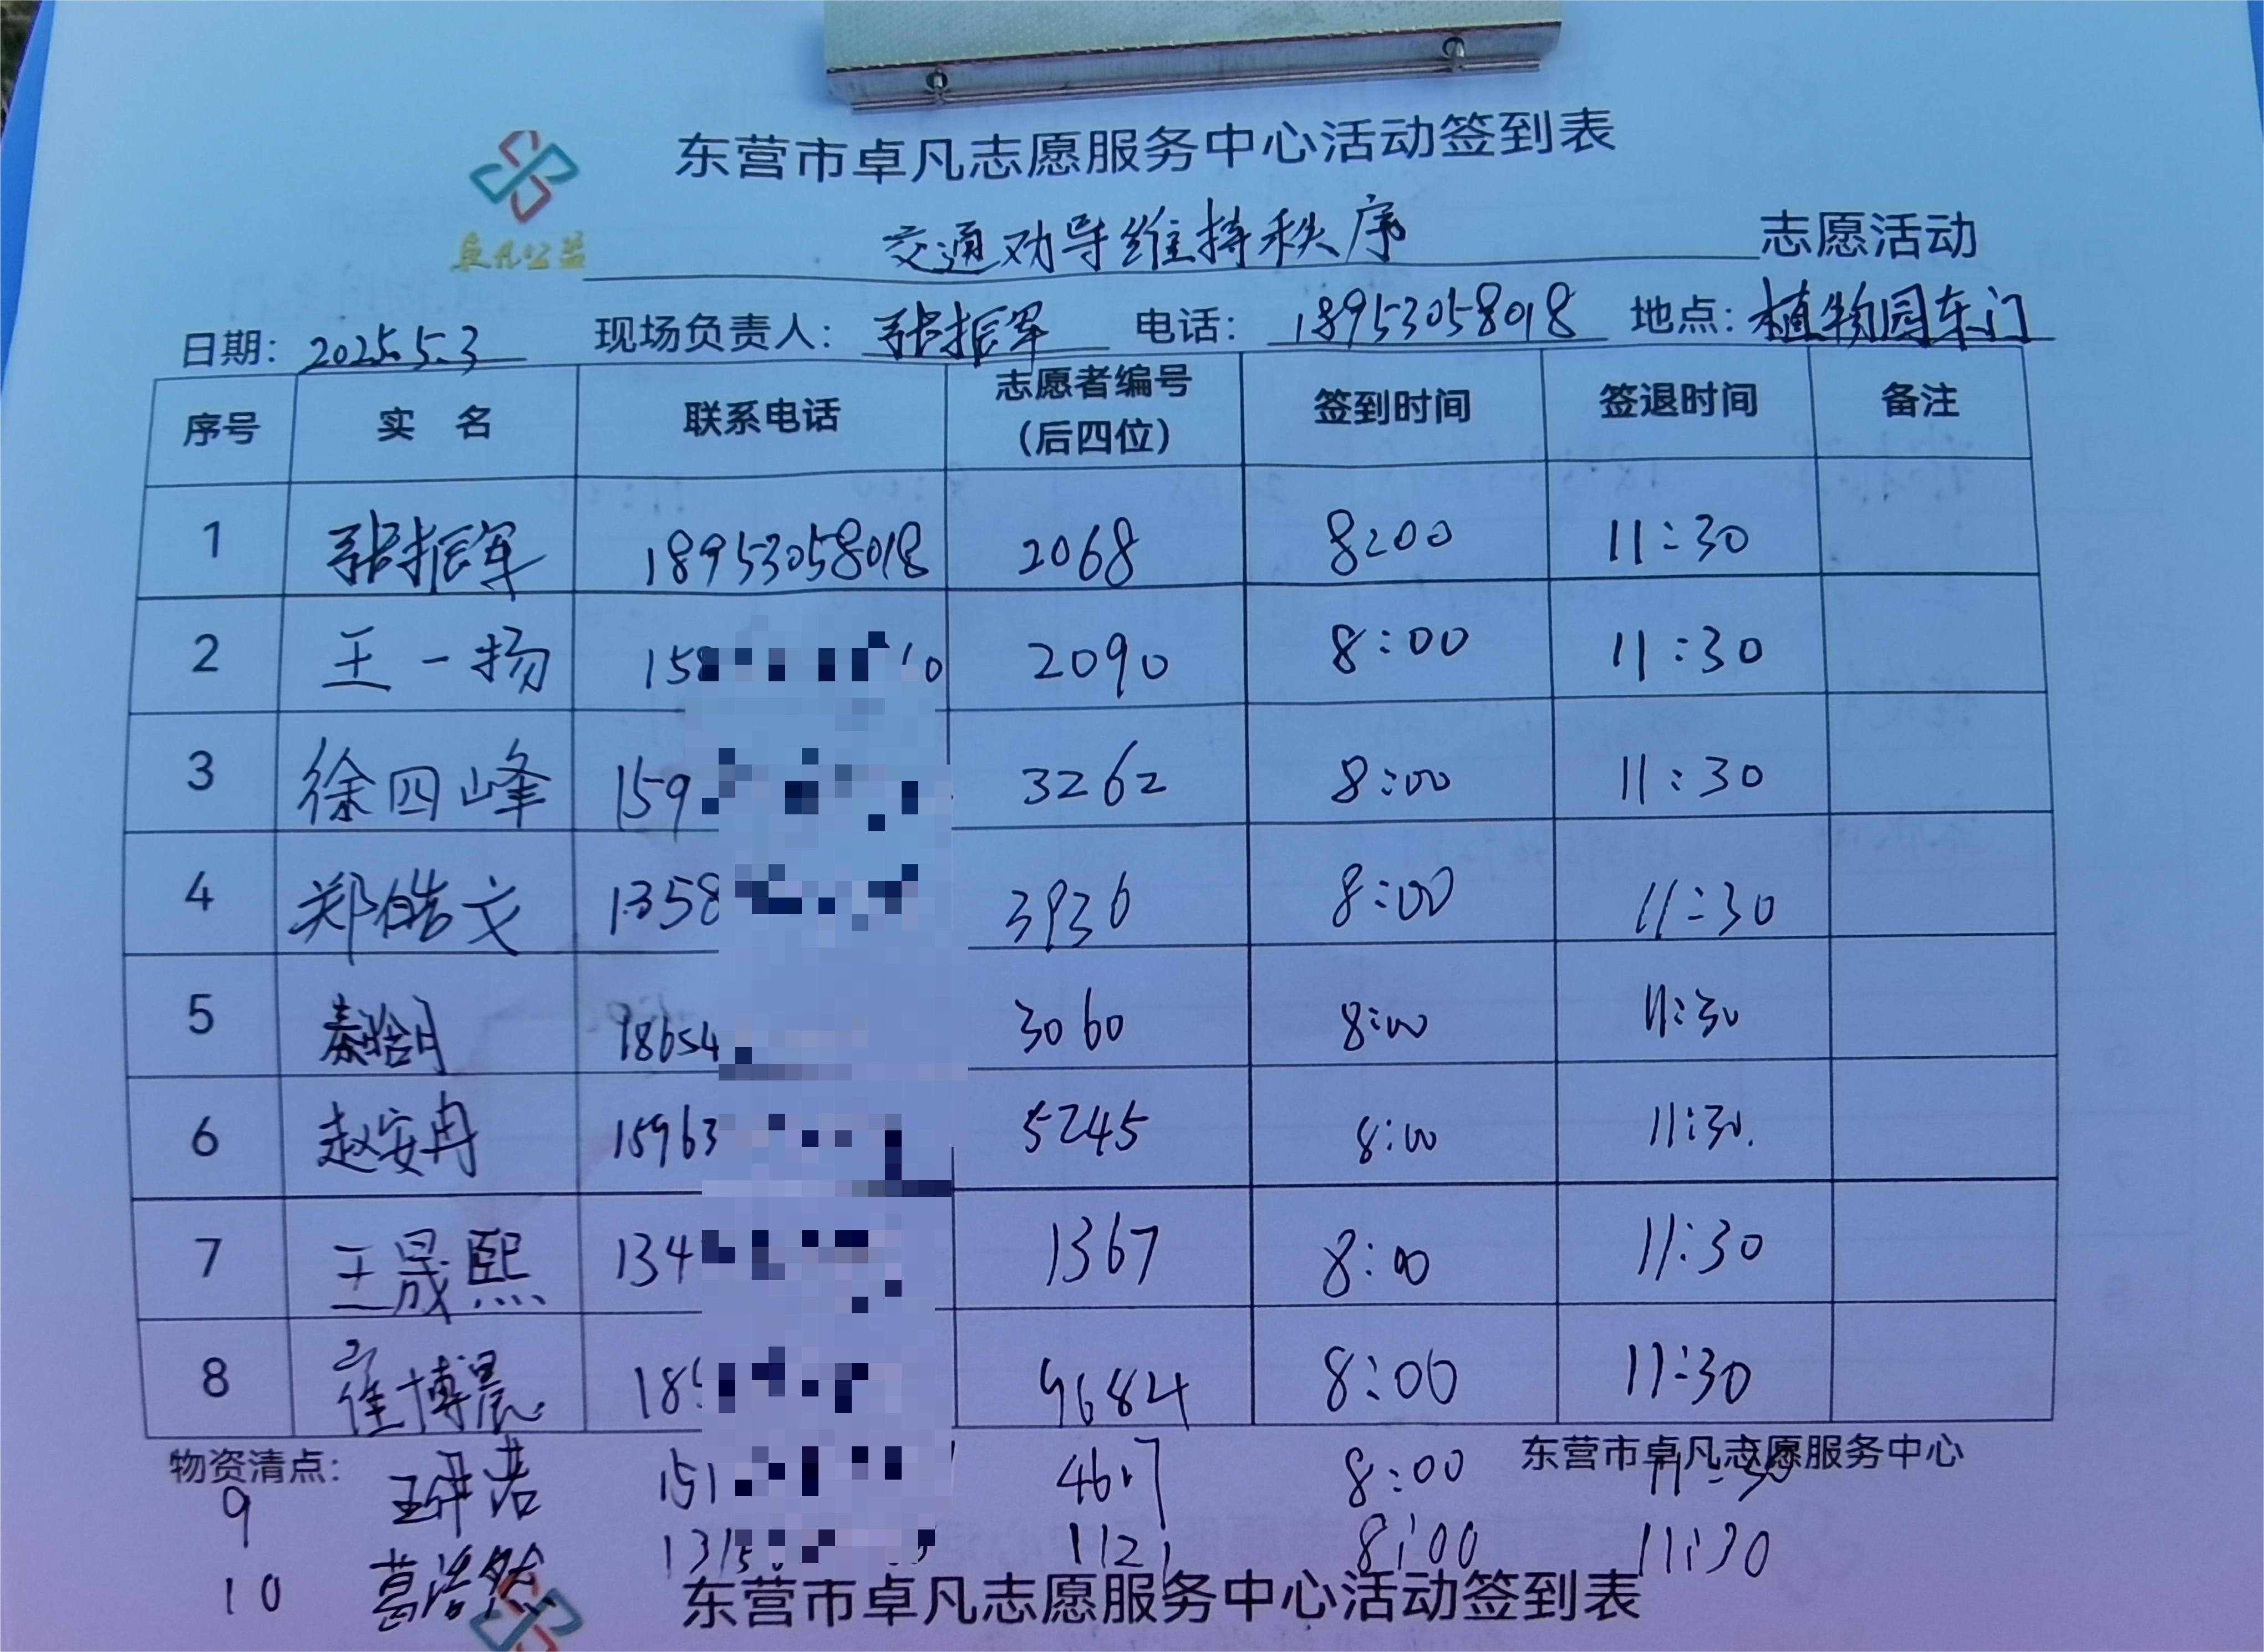 东营市卓凡志愿服务中心活动签到表
卓凡公益
交通劝导维持秩序 志愿活动
日期：2025.5.3 现场负责人：张振军 电话：18953058018 地点：植物园东门
序号 实 名 联系电话 志愿者编号（后四位） 签到时间 签退时间 备注
1 张振军 18953058018 2068 8:00 11:30
2 王一扬 158 10 2090 8:00 11:30
3 徐四峰 159 3262 8:00 11:30
4 郑皓文 1358 3936 8:00 11:30
5 秦晗月 18654 3060 8:00 11:30
6 赵安冉 15963 5245 8:00 11:30.
7 王晟熙 134 1367 8:00 11:30
8 崔博晨 185 9684 8:00 11:30
物资清点： 东营市卓凡志愿服务中心
9 王研若 151 4607 8:00 11:30
10 葛浩然 1315 1121 8:00 11:30
东营市卓凡志愿服务中心活动签到表